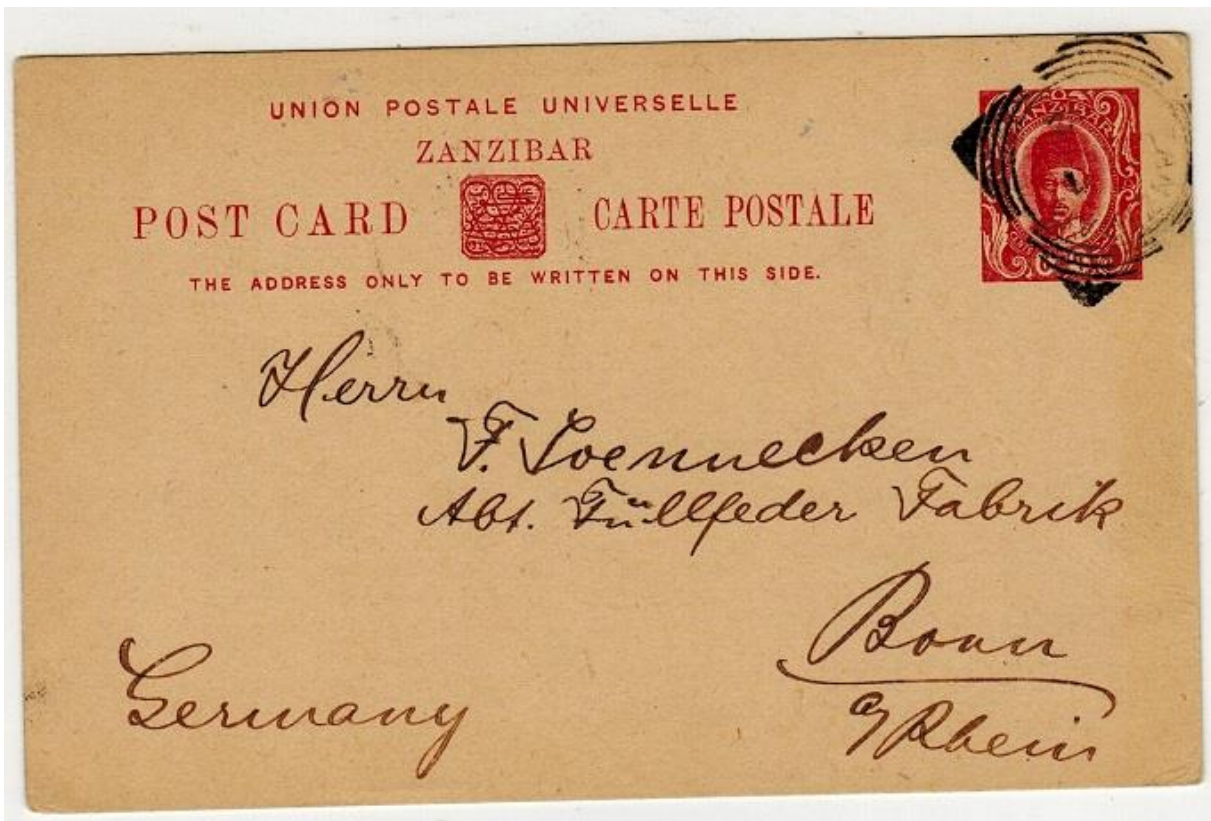 UNION POSTALE UNIVERSELLE
ZANZIBAR
POST CARD CARTE POSTALE
THE ADDRESS ONLY TO BE WRITTEN ON THIS SIDE.
ZANZIBAR
Herrn
F. Soennecken
Abt. Füllfeder Fabrik
Bonn
a/Rhein
Germany